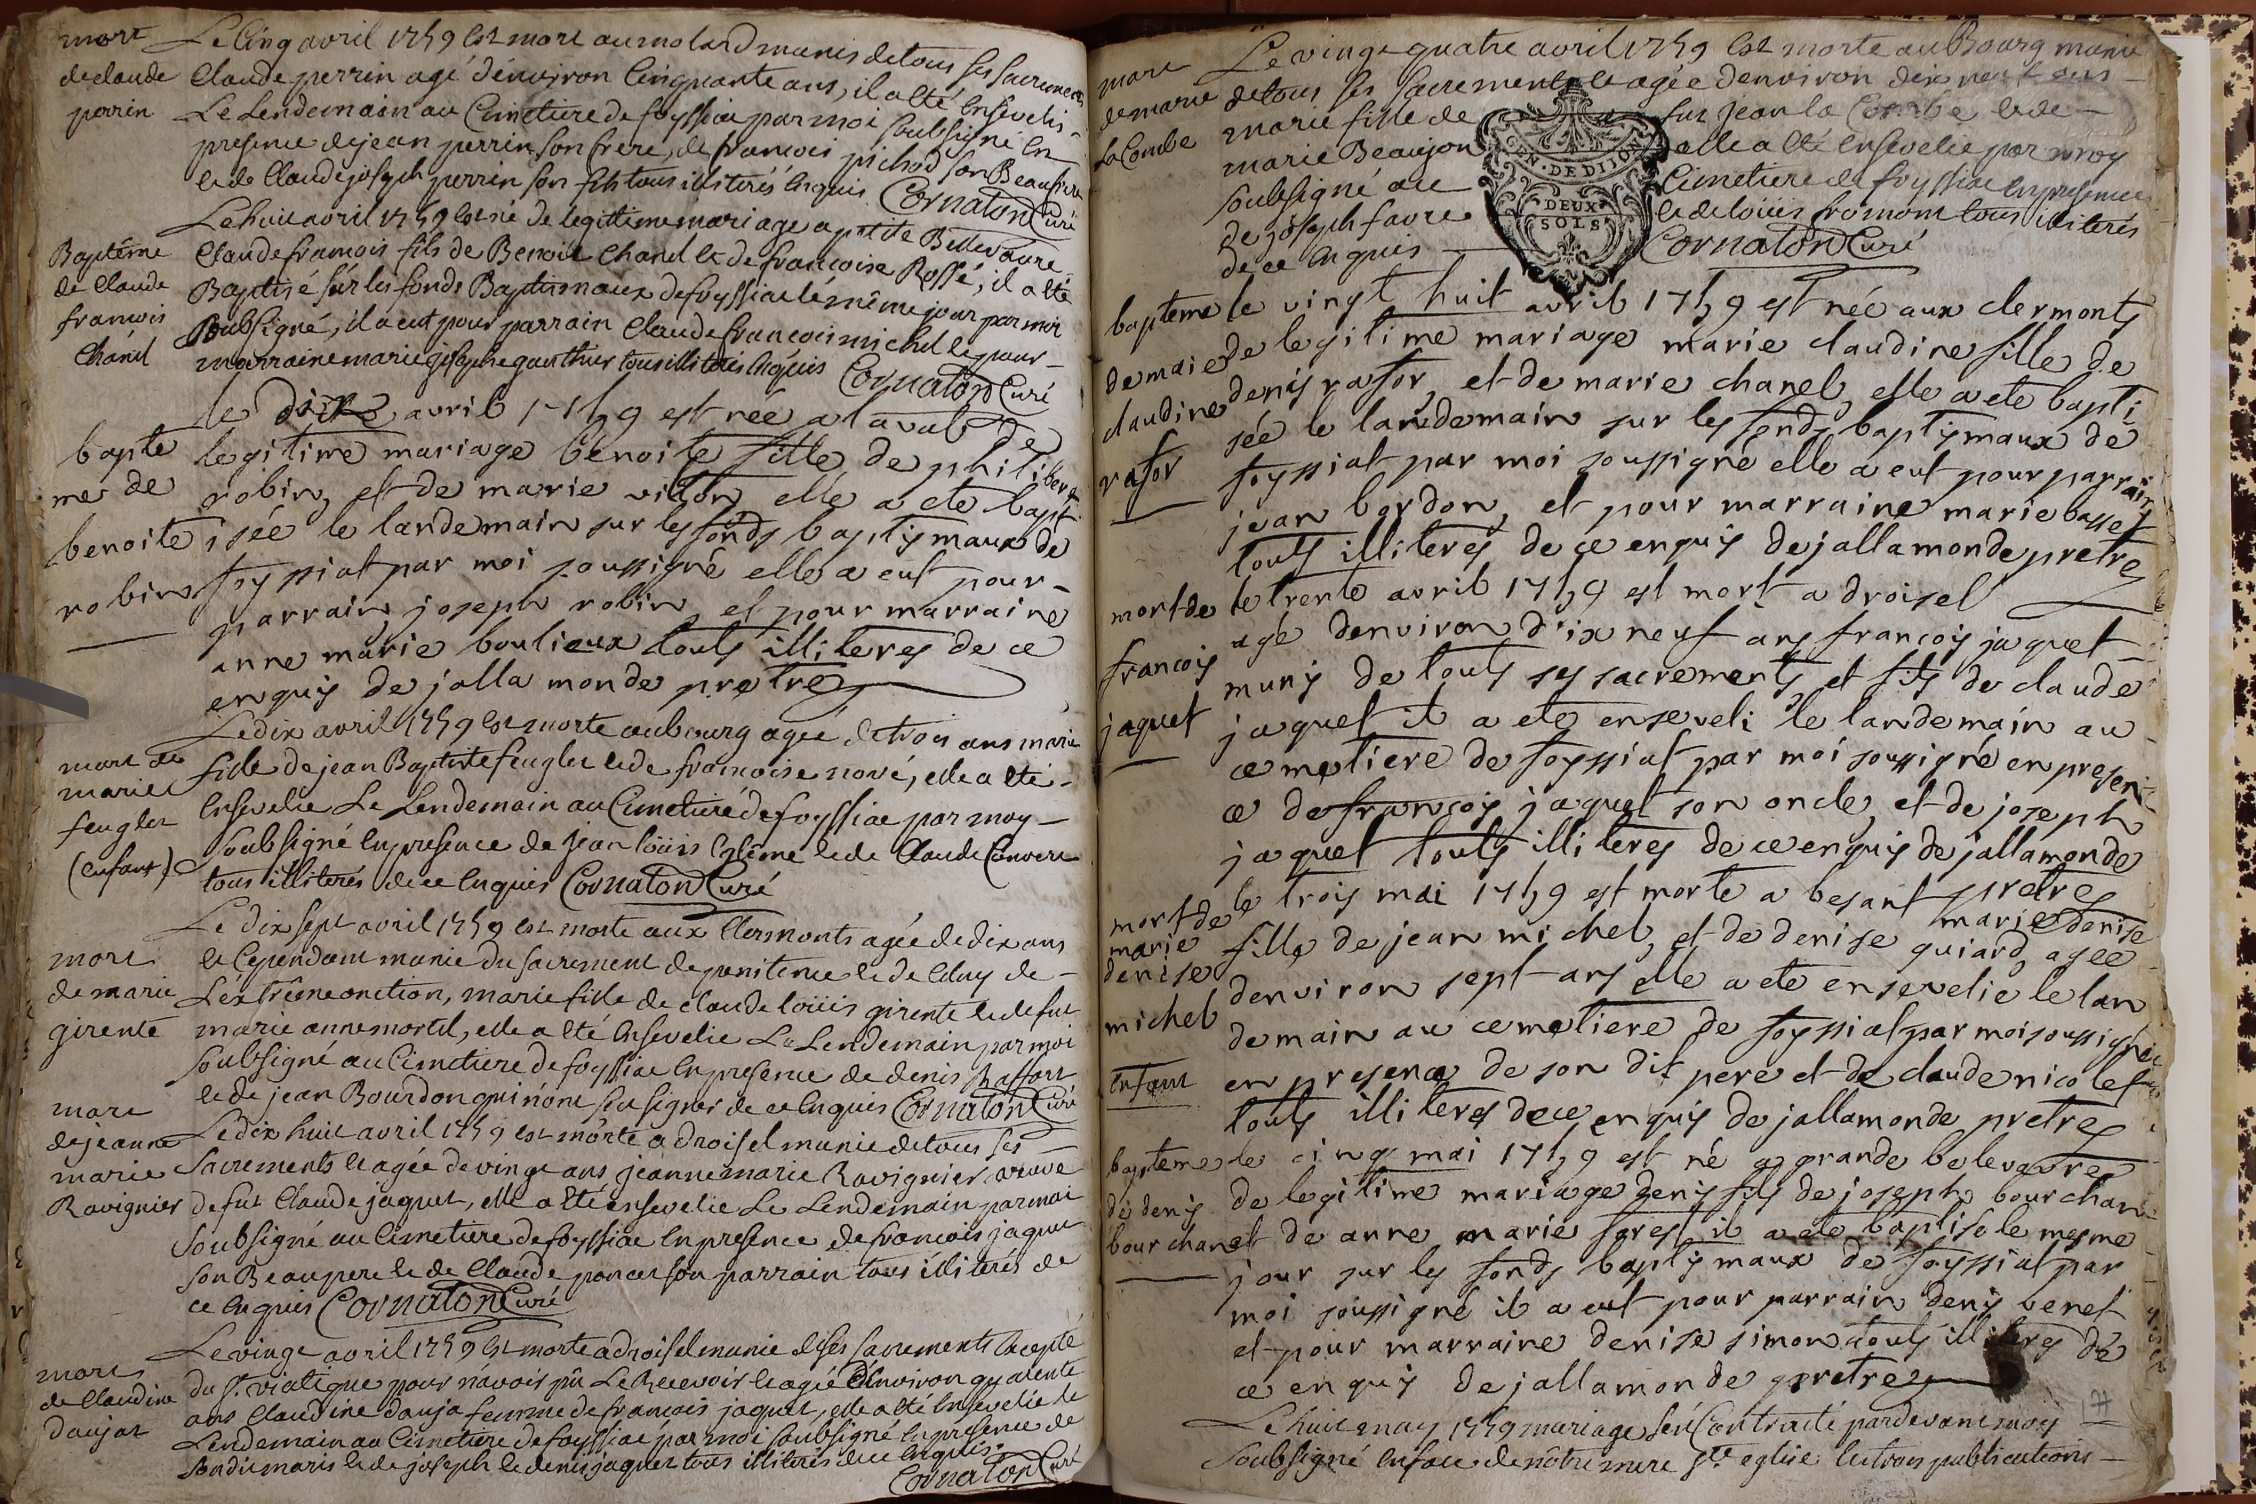 mort
de claude
perrin
Le Cinq avril 1759 est mort au molard munis de tous ses sacrements
Claude perrin agé d'environ Cinquante ans, il a été Ensevelis
Le Lendemain au Cimetiere de foyssiac par moi soubsigné En
presence de jean perrin son frere, de francois pichod son Beaufrere
et de Claude joseph perrin son fils tous illiterés Enquis Cornaton Curé
Baptême
de Claude
francois
Chanel
Le huit avril 1759 est né de legittime mariage a petite Bellevavre
Claude francois fils de Benoit Chanel et de francoise Rossé, il a été
Baptisé sur les fonds Baptismaux de foyssiac le même jour par moi
soubsigné, il a eut pour parrain Claude francois michel et pour
marraine marie josephe gauthier tous illiterés Enquis Cornaton Curé
bapte
me de
benoite
robin
le dix avril 1759 est née a laval de
legitime mariage benoite fille de philibert
robin et de marie villon elle a ete bapt
isée le landemain sur les fonds baptismaux de
foyssiat par moi soussigné elle a eut pour
parrain joseph robin et pour marraine
anne marie boulieux touts illiteres de ce
enquis de jallamonde pretre
mort de
marie
feuglet
(enfant)
Le dix avril 1759 est morte au bourg agée de trois ans marie
fille de jean Baptiste feuglet et de francoise nové, elle a été
Ensevelie Le Lendemain au Cimetiere de foyssiac par moy
soubsigné En presence de jean loüis et de Claude Convert
tous illiterés de ce Enquis Cornaton Curé
mort
de marie
girente
Le dix sept avril 1759 est morte aux Clermonts agée de dix ans
et Cependant munie du sacrement de penitence et de Celuy de
L'extrême onction, marie fille de claude loüis girente et de fut
marie anne mortel, elle a été Ensevelie Le Lendemain par moi
soubsigné au Cimetiere de foyssiac En presence de denis Raffort
et de jean Bourdon qui n'ont sçu signer de ce Enquis Cornaton Curé
mort
de jeanne
marie
Ravignier
Le dix huit avril 1759 est morte a droisel munie de tous ses
sacrements et agée de vingt ans jeanne marie Ravignier veuve
de fut Claude jaquet, elle a été ensevelie Le Lendemain par moi
soubsigné au Cimetiere de foyssiac En presence de francois jaquet
son Beaupere et de Claude poncet son parrain tous illiterés de
ce Enquis Cornaton Curé
mort
de Claudine
daujat
Le vingt avril 1759 est morte a droisel munie de ses sacrements Excepté
du St. viatique pour n'avoir pû Le Recevoir et agée d'Environ quarente
ans Claudine dauja femme de francois jaquet, elle a été Ensevelie le
Lendemain au Cimetiere de foyssiac par moi soubsigné En presence de
son dit maris et de joseph et denis jaquet tous illiterés de ce Enquis.
Cornaton Curé
mort
de marie
La Combe
Le vingt quatre avril 1759 est morte au Bourg munie
de tous ses sacrements et agée d'environ dix neuf ans
marie fille de fut jean la Combe et de
marie Beaujon elle a été Ensevelie par moy
soubsigné au Cimetiere de foyssiac En presence
de joseph favre et de loüis fromont tous illiterés
de ce Enquis Cornaton Curé
GEN · DE DIJON
DEUX
SOLS
bapteme
de marie
claudine
rafor
le vingt huit avril 1759 est née aux clermonts
de legitime mariage marie claudine fille de
denis rafor, et de marie chanel, elle a ete bapti
sée le landemain sur les fonds baptismaux de
foyssiat par moi soussigné elle a eut pour parrain
jean bordon, et pour marraine marie basset
touts illiteres de ce enquis de jallamonde pretre
mort de
francois
jaquet
le trente avril 1759 est mort a droisel
agé denviron dix neuf ans francois jaquet
munis de touts ses sacrements et fils de claude
jaquet il a ete enseveli le landemain au
cemetiere de foyssiat par moi soussigné en presen
ce de francois jaquet son oncle, et de joseph
jaquet touts illiteres de ce enquis de jallamonde
pretre
mort de
marie
denise
michel
Enfant
le trois mai 1759 est morte a besant marie denise
fille de jean michel, et de denise guiard, agee
denviron sept ans elle a ete ensevelie le lan
demain au cemetiere de foyssiat par moi soussigné
en presence de son dit pere et de claude nicolet
touts illiteres de ce enquis de jallamonde pretre
bapteme
de denis
bourchan
le cinq mai 1759 est né a grande belevavre
de legitime mariage denis fils de joseph bourchan
et de anne marie forest il a ete baptisé le mesme
jour sur les fonds baptismaux de foyssiat par
moi soussigné il a eut pour parrain denis benet
et pour marraine denise simon touts illiteres de
ce enquis de jallamonde pretre
Le huit may 1759 mariage s'est Contracté pardevant moy
soubsigné En face de nôtre mere Ste eglise les trois publications